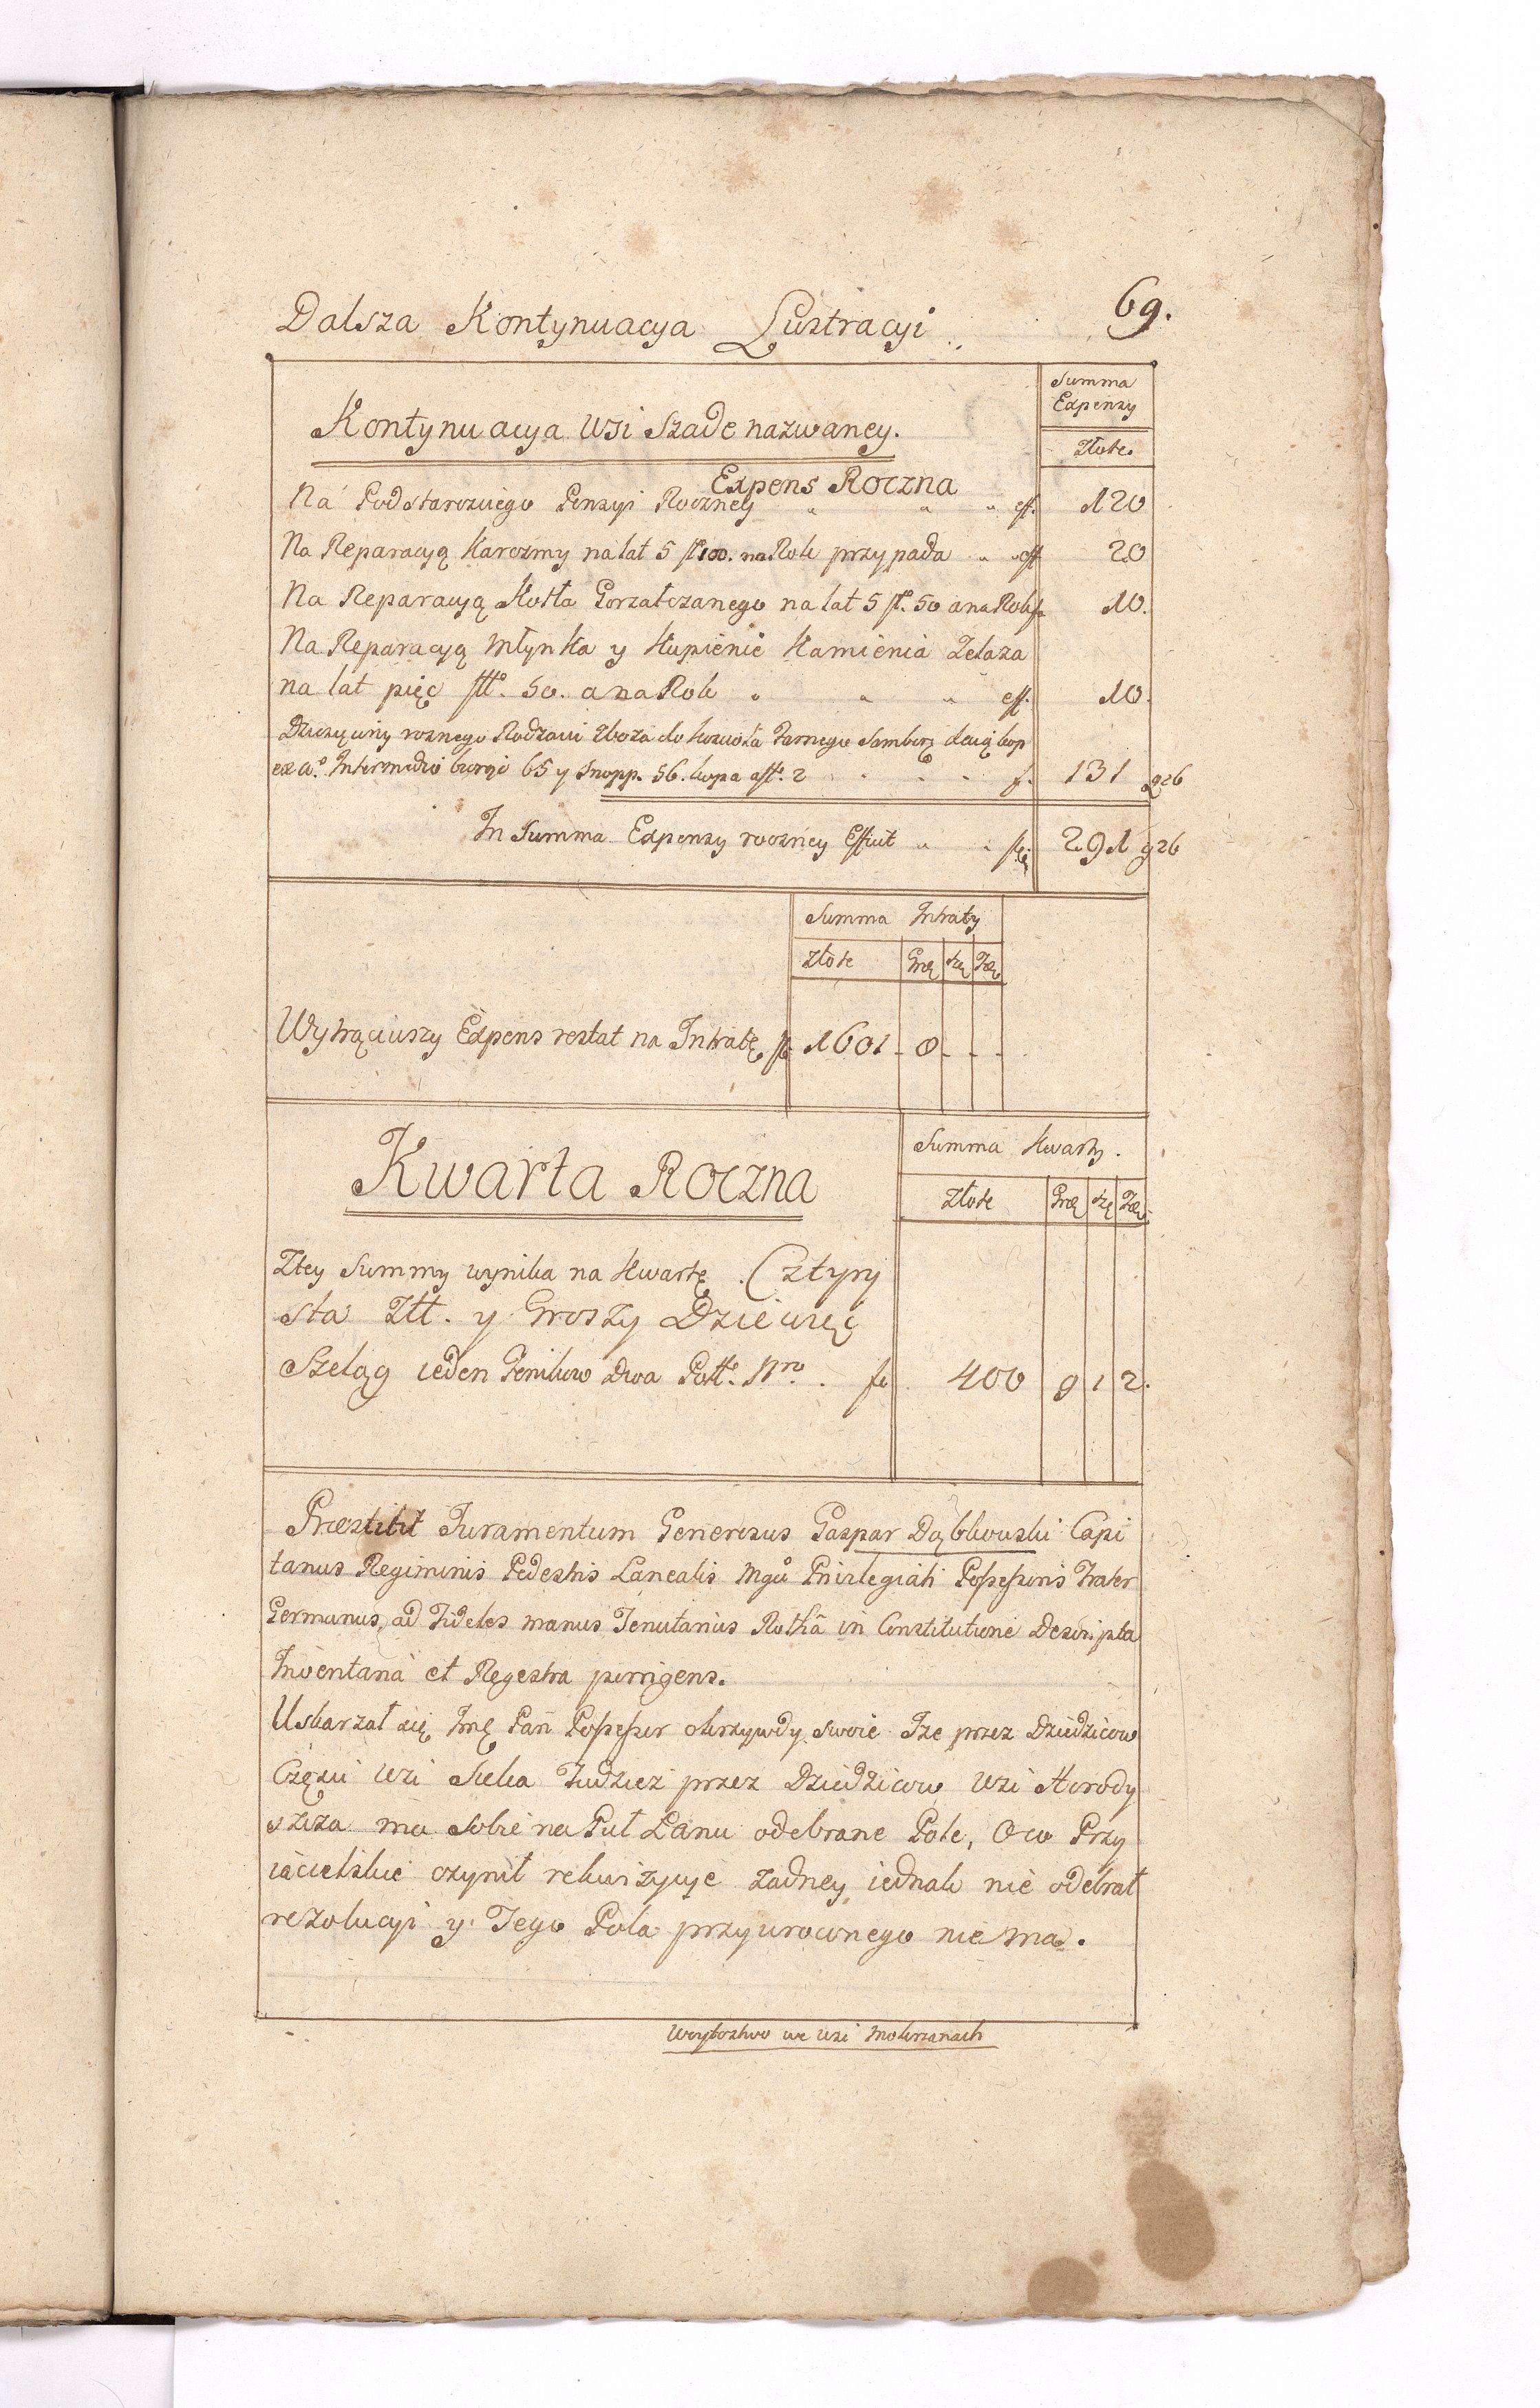 Dalsza Kontynuacya Lustracyi 69.
Summa
Expensy
Kontynuacya wsi Szade nazwaney.
Złote.
Expens Roczna
Na Podstarosciego Pensyi Roczney " " " eff. 120
Na Reparacyą Karczmy na lat 5 fl 100. na Rok przypada " " eff 20
Na Reparacyą Kotła Gorzałczanego na lat 5 fl. 50 a na Rok f 10.
Na Reparacyą Młynka y Kupienie Kamienia Zelaza
na lat pięc fl. 50. a na Rok " " " eff. 10.
Dziesięciny roznego Rodzaiu Zboza do Koscioła Farnego Samborz daią kop
ex a. Intermedio biorąc 65 y Snopp. 56. kopa a fl. 2 f. 131 g 26
In Summa Expensy roczney Efficit " " fl. 291 g 26
Summa Intraty
Złote Grę Szę Fęę
Wytrąciwszy Expens restat na Intratę fl. 1601 - 0 - - -
Summa Kwarty.
Kwarta Roczna
Złote Grę Szę Fęę
Ztey Summy wynika na Kwartę. Cztyry
sta Złł. y Groszy Dziewięć
Szeląg ieden Fenikow Dwa Poll. Nro. fl 400 9 1 2.
Præstitit Juramentum Generosus Gaspar Dąbkowski Capi
tanus Regiminis Pedestris Lanealis Mgci Privilegiati Possessoris Frater
Germanus, ad Fideles manus Tenutarius Rothâ in Constitutione Descripta
Inventaria et Regestra porrigens.
Uskarzał się Jmć Pan Possessor o krzywdy swoie Ize przez Dziedzicow
Częsci wsi Sieka Tudziez przez Dziedzicow wsi Horody
szcza ma sobie na Puł Łanu odebrane Pole, O co Przy
iacielskie czynił rekwizycye zadney iednak nie odebrał
rezolucyi y Tego Pola przywroconego nie ma.
Woytostwo we wsi Mokrzanach